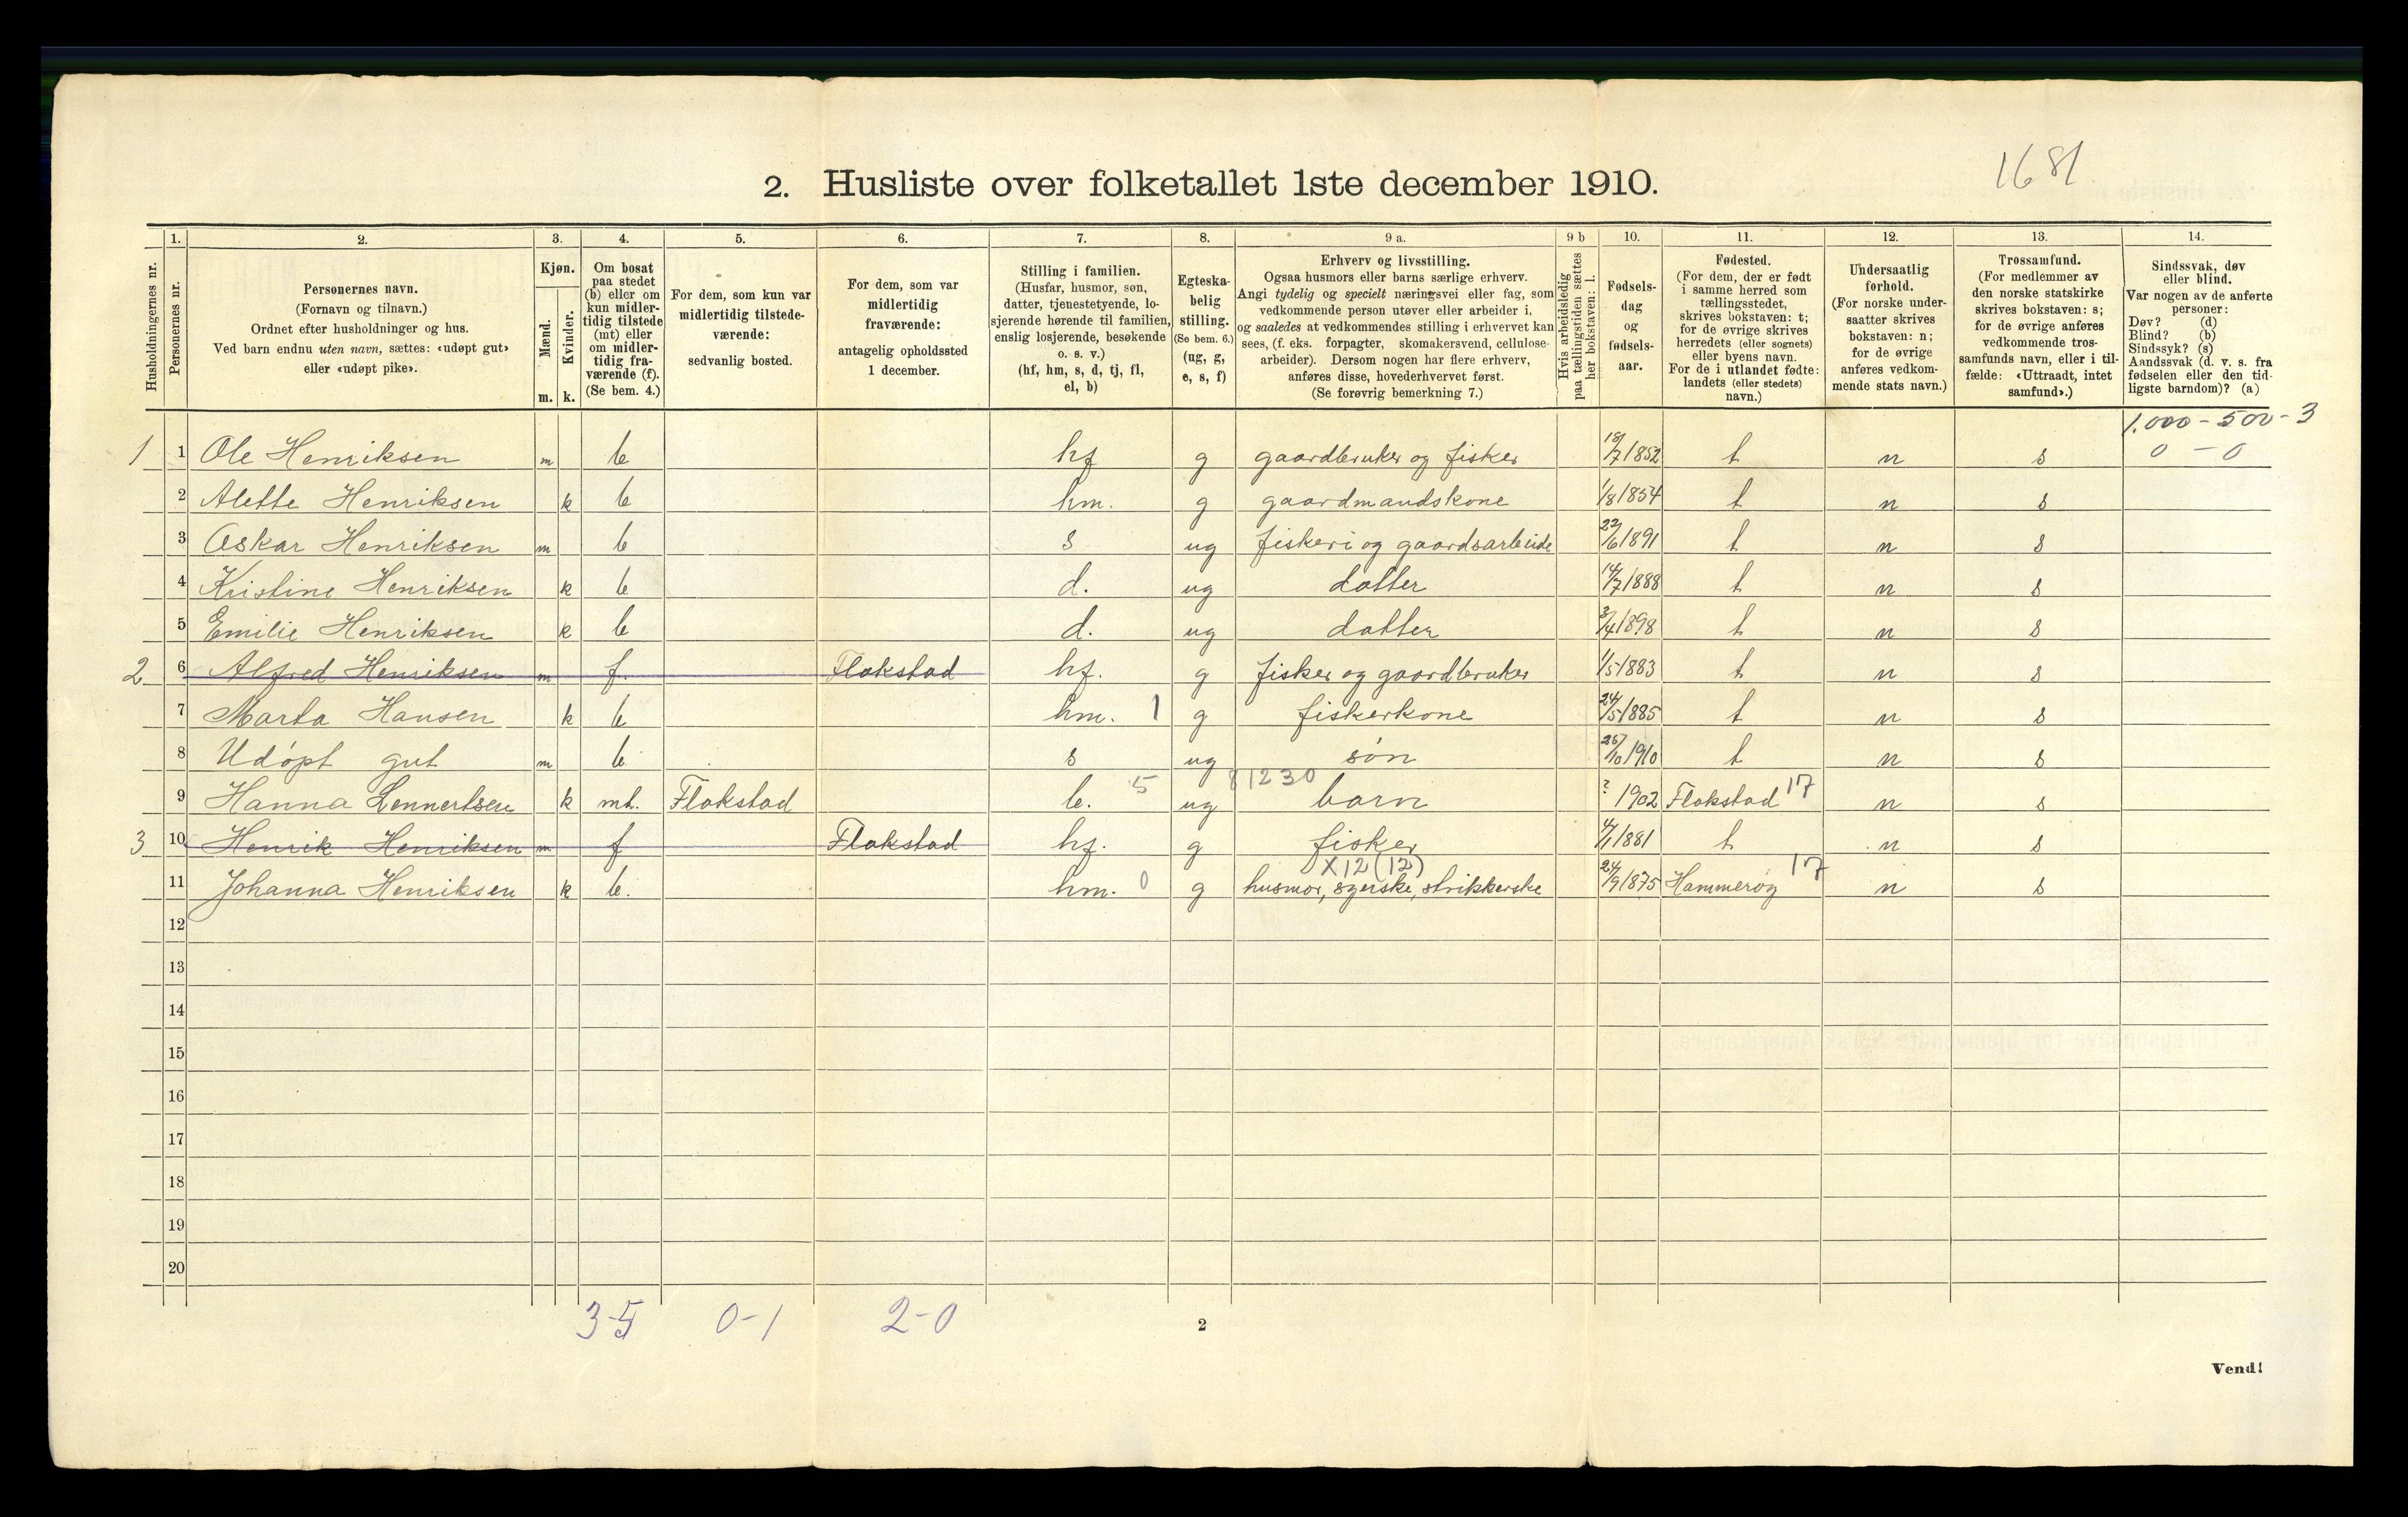 1681
2. Husliste over folketallet 1ste december 1910.
Husholdningernes nr.
1. Personernes nr.
2. Personernes navn. (Fornavn og tilnavn.) Ordnet efter husholdninger og hus. Ved barn endnu uten navn, sættes: «udøpt gut» eller «udøpt pike».
3. Kjøn. Mænd. m. Kvinder. k.
4. Om bosat paa stedet (b) eller om kun midlertidig tilstede (mt) eller om midlertidig fraværende (f). (Se bem. 4.)
5. For dem, som kun var midlertidig tilstedeværende: sedvanlig bosted.
6. For dem, som var midlertidig fraværende: antagelig opholdssted 1 december.
7. Stilling i familien. (Husfar, husmor, søn, datter, tjenestetyende, losjerende hørende til familien, enslig losjerende, besøkende o. s. v.) (hf, hm, s, d, tj, fl, el, b)
8. Egteskabelig stilling. (Se bem. 6.) (ug, g, e, s, f)
9 a. Erhverv og livsstilling. Ogsaa husmors eller barns særlige erhverv. Angi tydelig og specielt næringsvei eller fag, som vedkommende person utøver eller arbeider i, og saaledes at vedkommendes stilling i erhvervet kan sees, (f. eks. forpagter, skomakersvend, cellulosearbeider). Dersom nogen har flere erhverv, anføres disse, hovederhvervet først. (Se forøvrig bemerkning 7.)
9 b Hvis arbeidsledig paa tællingstiden sættes her bokstaven: l.
10. Fødselsdag og fødselsaar.
11. Fødested. (For dem, der er født i samme herred som tællingsstedet, skrives bokstaven: t; for de øvrige skrives herredets (eller sognets) eller byens navn. For de i utlandet fødte: landets (eller stedets) navn.)
12. Undersaatlig forhold. (For norske undersaatter skrives bokstaven: n; for de øvrige anføres vedkommende stats navn.)
13. Trossamfund. (For medlemmer av den norske statskirke skrives bokstaven: s; for de øvrige anføres vedkommende trossamfunds navn, eller i tilfælde: «Uttraadt, intet samfund».)
14. Sindssvak, døv eller blind. Var nogen av de anførte personer: Døv? (d) Blind? (b) Sindssyk? (s) Aandssvak (d. v. s. fra fødselen eller den tidligste barndom)? (a)
1.000 - 500 - 3
1 1 Ole Henriksen m b hf g gaardbruker og fisker 18/7 1852 t n s 0 - 0
2 Alette Henriksen k b hm. g gaardmandskone 1/8 1854 t n s
3 Oskar Henriksen m b s ug fiskeri og gaardsarbeide 22/6 1891 t n s
4 Kristine Henriksen k b d. ug datter 14/7 1888 t n s
5 Emilie Henriksen k b d. ug datter 3/4 1898 t n s
2 6 Alfred Henriksen m f. Flakstad hf. g fisker og gaardbruker 1/5 1883 t n s
7 Marta Hansen k b hm. 1 g fiskerkone 24/5 1885 t n s
8 Udøpt gut m b s ug søn 25/10 1910 t n s
9 Hanna Lennertsen k mt. Flakstad b. 5 ug 81230 barn ? 1902 Flakstad 17 n s
3 10 Henrik Henriksen m f Flakstad hf. g fisker 4/1 1881 t n s
X12 (12)
11 Johanna Henriksen k b. hm. 0 g husmor, syerske, strikkerske 24/9 1875 Hammerøy 17 n s
12
13
14
15
16
17
18
19
20
3-5 0-1 2-0
2
Vend!